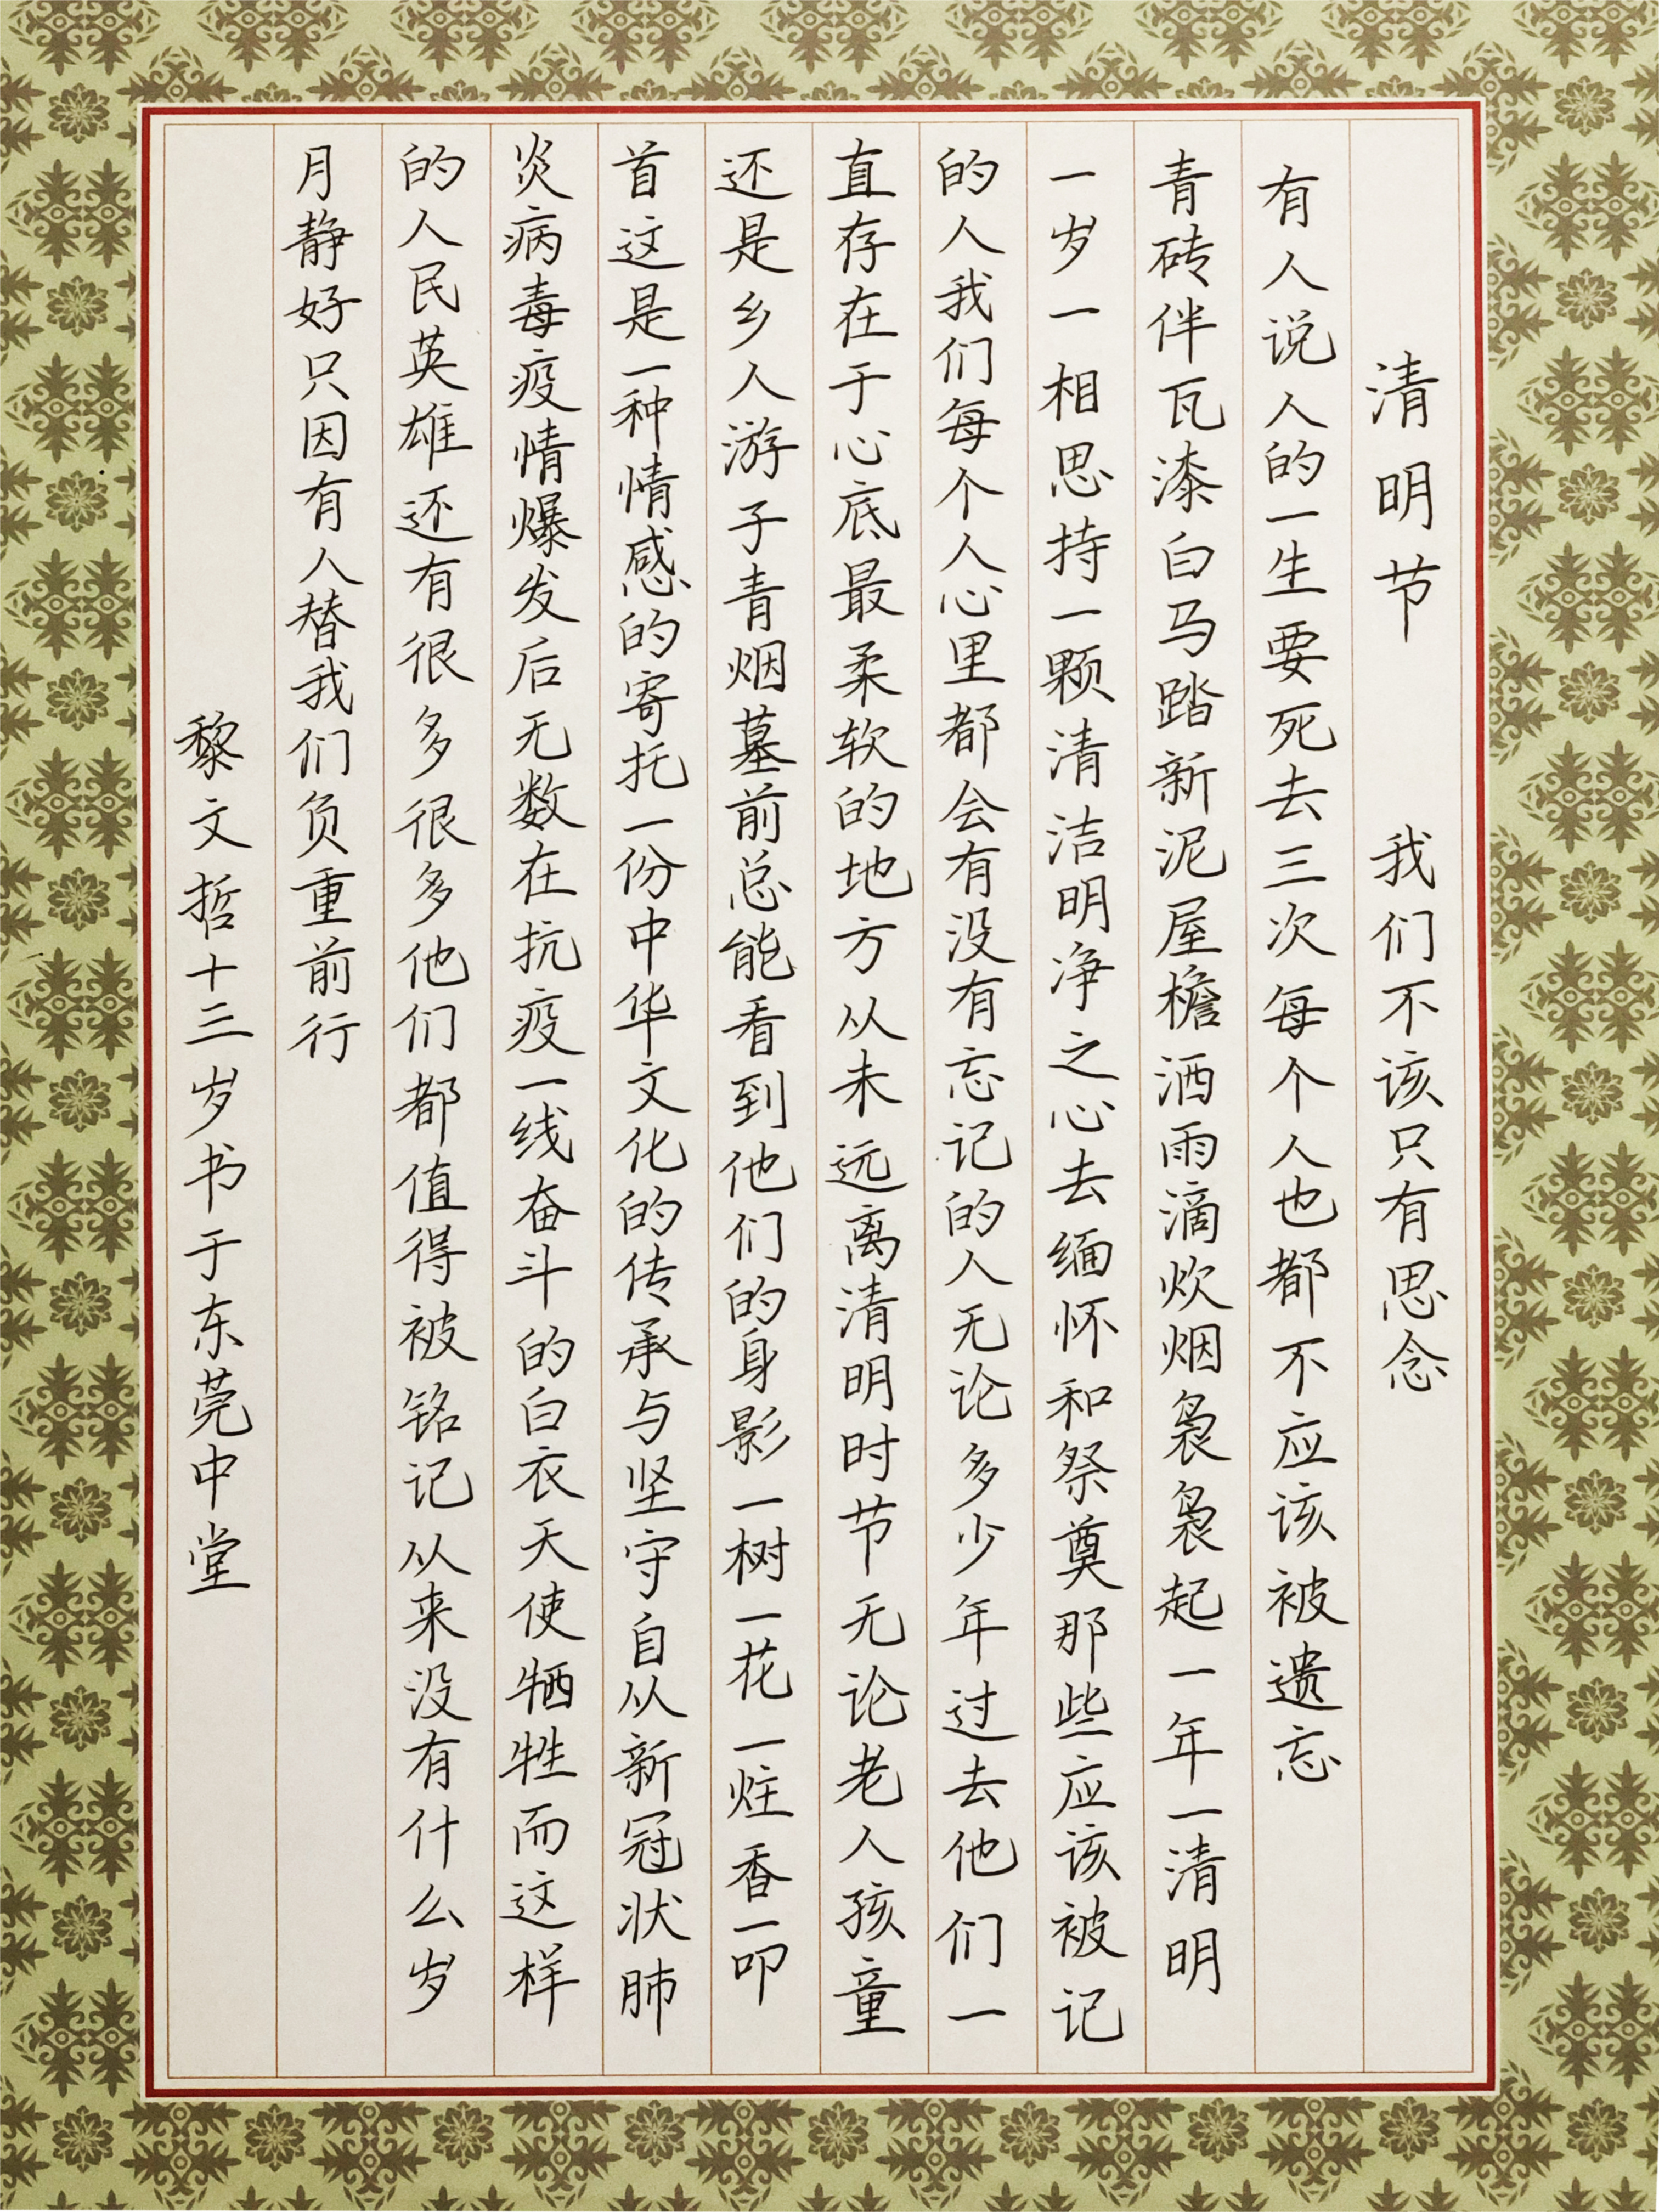 清明节 我们不该只有思念
有人说人的一生要死去三次每个人也都不应该被遗忘
青砖伴瓦漆白马踏新泥屋檐洒雨滴炊烟袅袅起一年一清明
一岁一相思持一颗清洁明净之心去缅怀和祭奠那些应该被记
的人我们每个人心里都会有没有忘记的人无论多少年过去他们一
直存在于心底最柔软的地方从未远离清明时节无论老人孩童
还是乡人游子青烟墓前总能看到他们的身影一树一花一炷香一叩
首这是一种情感的寄托一份中华文化的传承与坚守自从新冠状肺
炎病毒疫情爆发后无数在抗疫一线奋斗的白衣天使牺牲而这样
的人民英雄还有很多很多他们都值得被铭记从来没有什么岁
月静好只因有人替我们负重前行
黎文哲十三岁书于东莞中堂